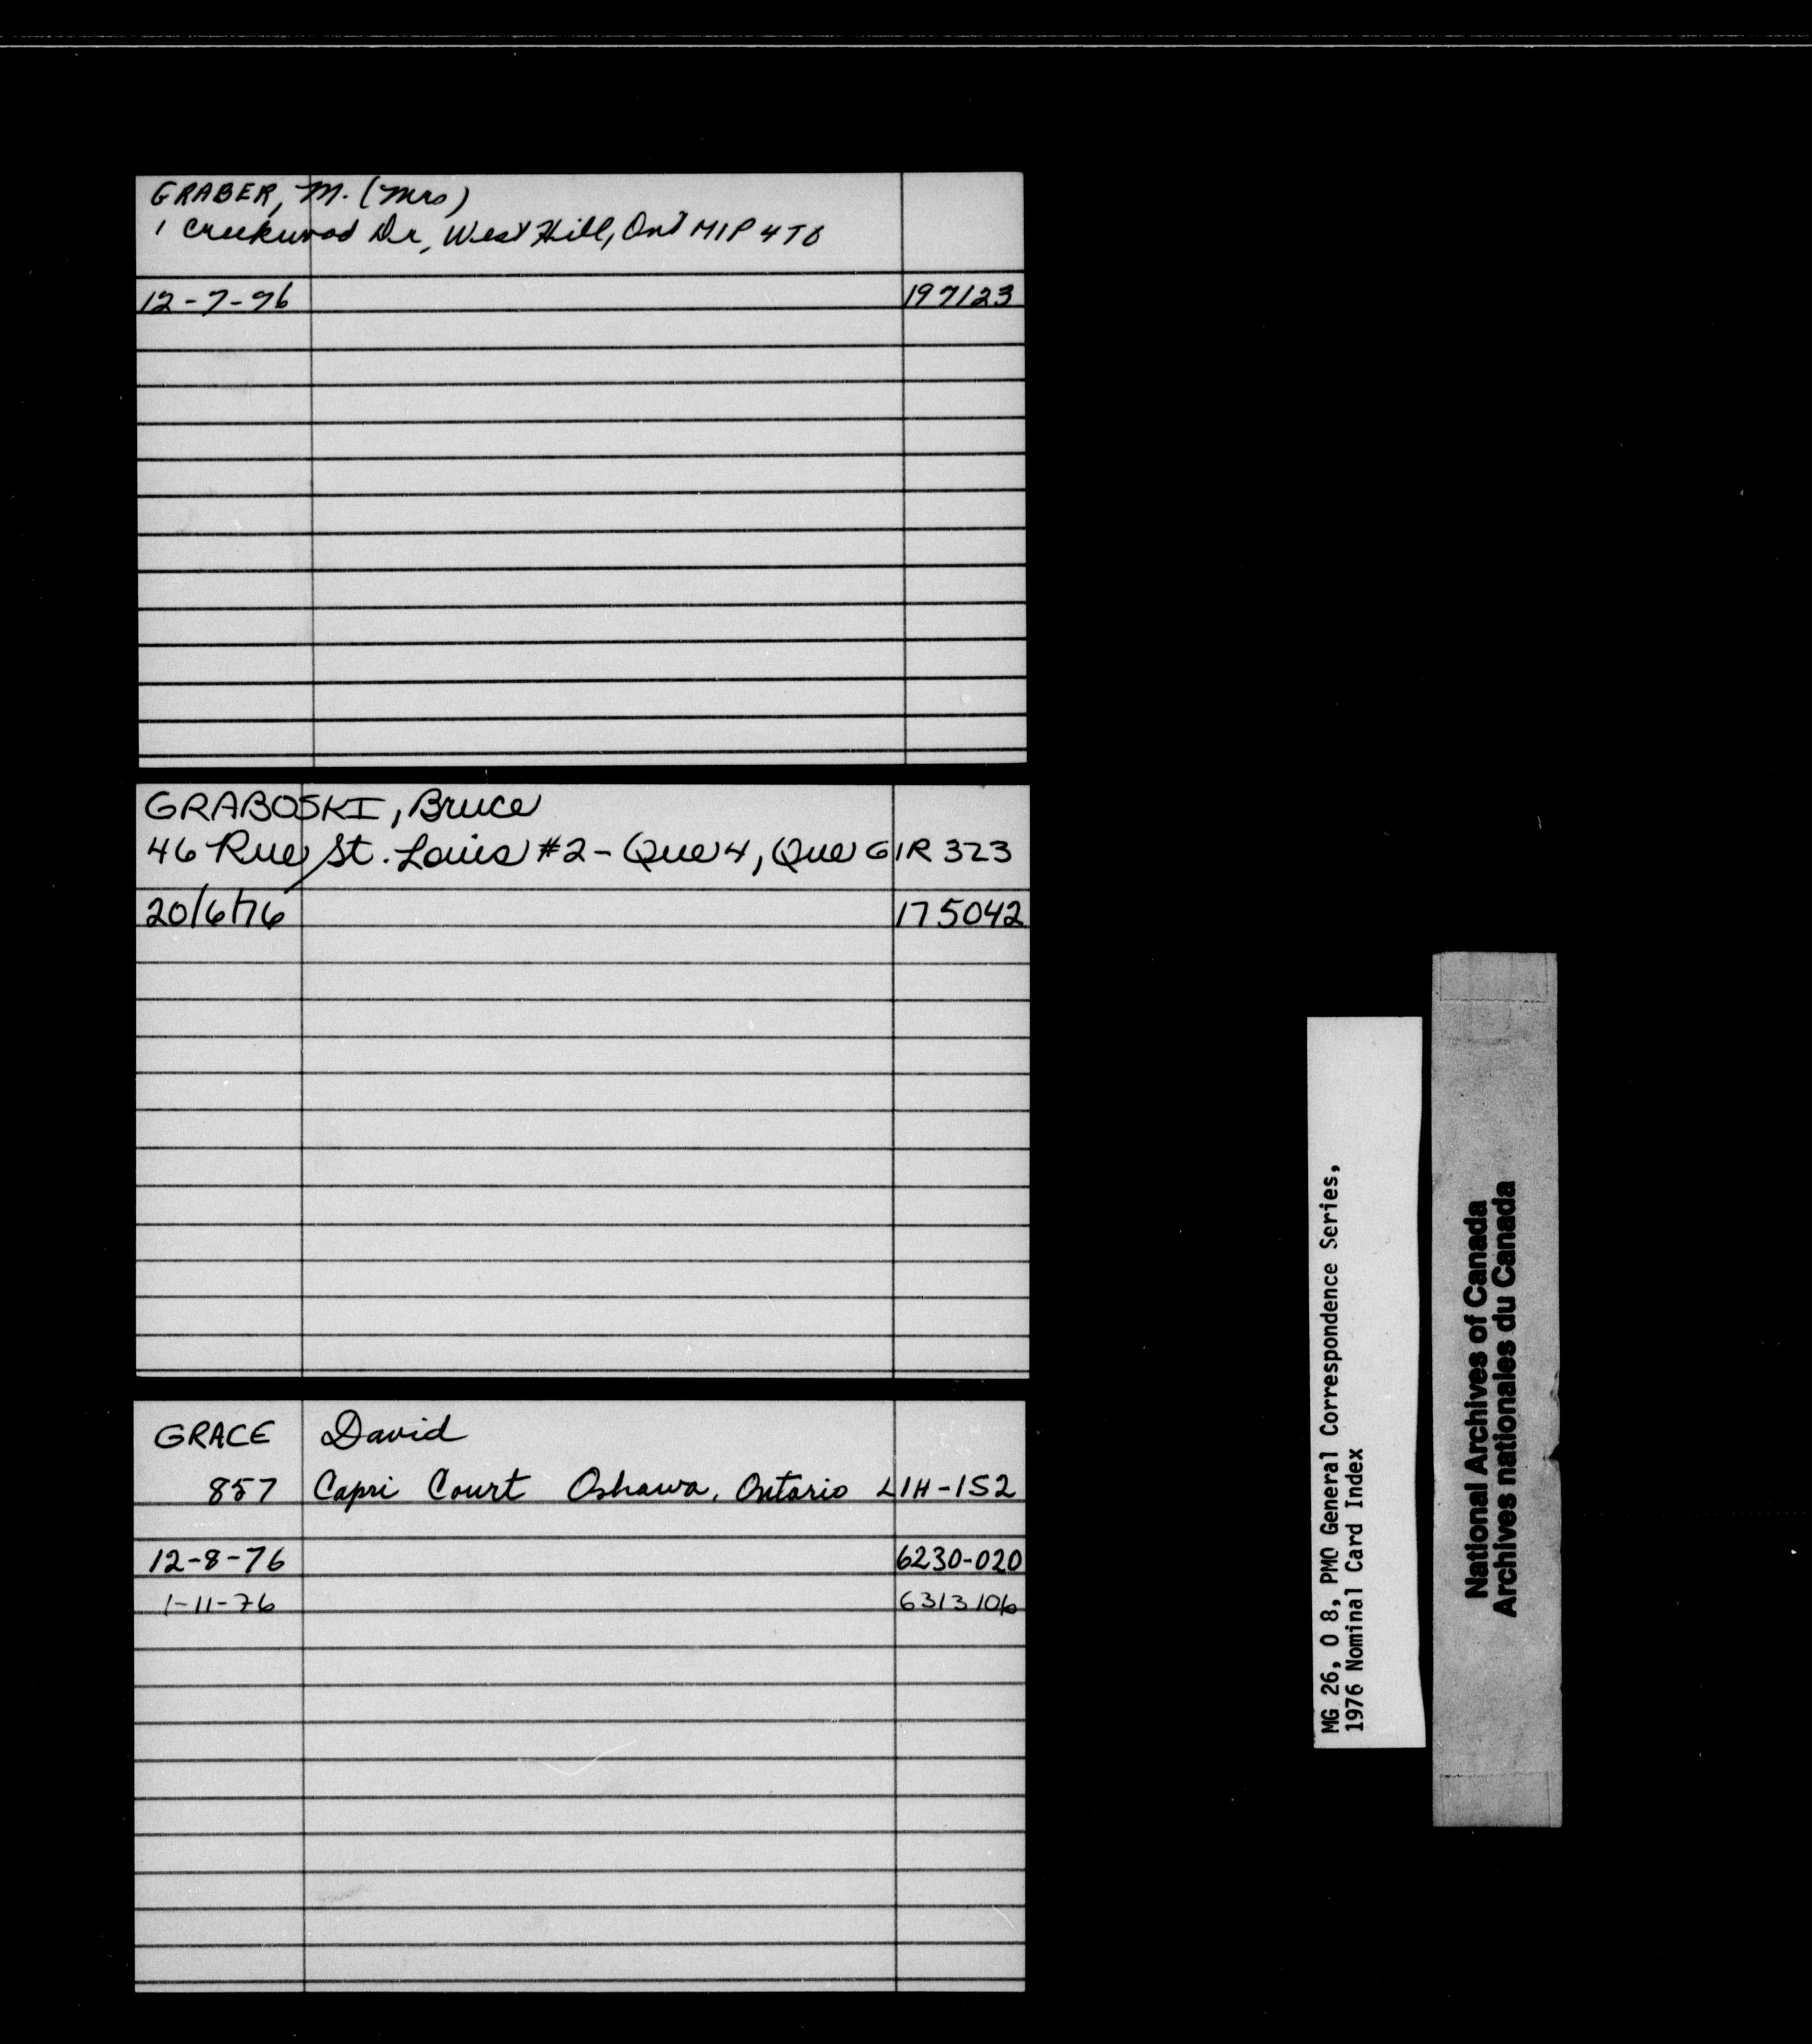 GRABER, M. (Mrs)
1 Creekwood Dr, West Hill, Ont M1P 4T6
12-7-76
197123
GRABOSKI, Bruce
46 Rue St. Louis #2 - Que 4, Que G1R 3Z3
20/6/76
175042
GRACE David
857 Capri Court Oshawa, Ontario L1H-1S2
12-8-76
6230-020
1-11-76
6313106
MG 26, O 8, PMO General Correspondence Series,
1976 Nominal Card Index
National Archives of Canada
Archives nationales du Canada